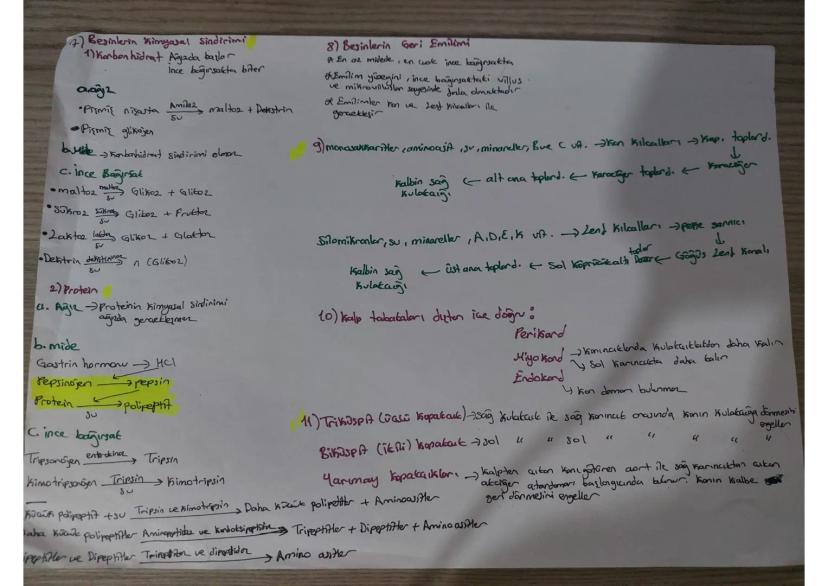 7) Besinlerin Kimyasal Sindirimi
1) Karbonhidrat Ağızda başlar
İnce bağırsakta biter
a. ağız
• Pişmiş nişasta Amilaz su → maltoz + Dekstrin
• Pişmiş glikojen
b. Mide → Karbonhidrat sindirimi olmaz
c. İnce Bağırsak
• maltoz maltaz su → Glikoz + Glikoz
• Sükroz sükraz su → Glikoz + Fruktoz
• Laktoz laktaz su → Glikoz + Galaktoz
• Dekstrin su → n (Glikoz)
2) Protein
a. Ağız → Proteinin kimyasal sindirimi
ağızda gerçekleşmez
b. mide
Gastrin hormonu → HCl
Pepsinojen → pepsin
Protein su → polipeptit
C. ince bağırsak
Tripsinojen enterokinaz → Tripsin
Kimotripsinojen Tripsin su → Kimotripsin
Küçük polipeptit + su Tripsin ve Kimotripsin → Daha küçük polipeptitler + Aminoasitler
Daha küçük polipeptitler Aminopeptidaz ve → Tripeptitler + Dipeptitler + Aminoasitler
Tripeptitler ve Dipeptitler ve dipeptidaz → Amino asitler
8) Besinlerin Geri Emilimi
En az midede, en çok ince bağırsakta
Emilim yüzeyini, ince bağırsaktaki villus
ve mikrovillusları sayesinde fazla olmaktadır
Emilimler kan ve Lenf kılcalları ile
gerçekleşir
9) monosakkaritler, aminoasit, su, mineraller, B ve C vit. → Kan kılcalları → Kap. toplard.
↓
Kalbin sağ ← alt ana toplard. ← Karaciğer toplard. ← Karaciğer
kulakçığı
Şilomikronlar, su, mineraller, A, D, E, K vit. → Lenf kılcalları → peke sarnıcı
↓
Kalbin sağ ← üst ana toplard. ← Sol köprücükaltı toplar ← Göğüs Lenf kanalı
kulakçığı
10) Kalp tabakaları dıştan içe doğru:
Perikard
Miyokard → Karıncıklarda kulakçıklardan daha kalın
↳ Sol karıncıkta daha kalın
Endokard
↳ Kan damarı bulunmaz
11) Triküspit (üçlü kapakçık) → Sağ kulakçık ile sağ karıncık arasında kanın kulakçığa dönmesini
engeller
Biküspit (ikili) kapakçık → Sol " " sol " " " " "
Yarımay kapakçıkları → Kalpten çıkan kanı götüren aort ile sağ karıncıktan çıkan
akciğer atardamarı başlangıcında bulunur. Kanın kalbe
geri dönmesini engeller